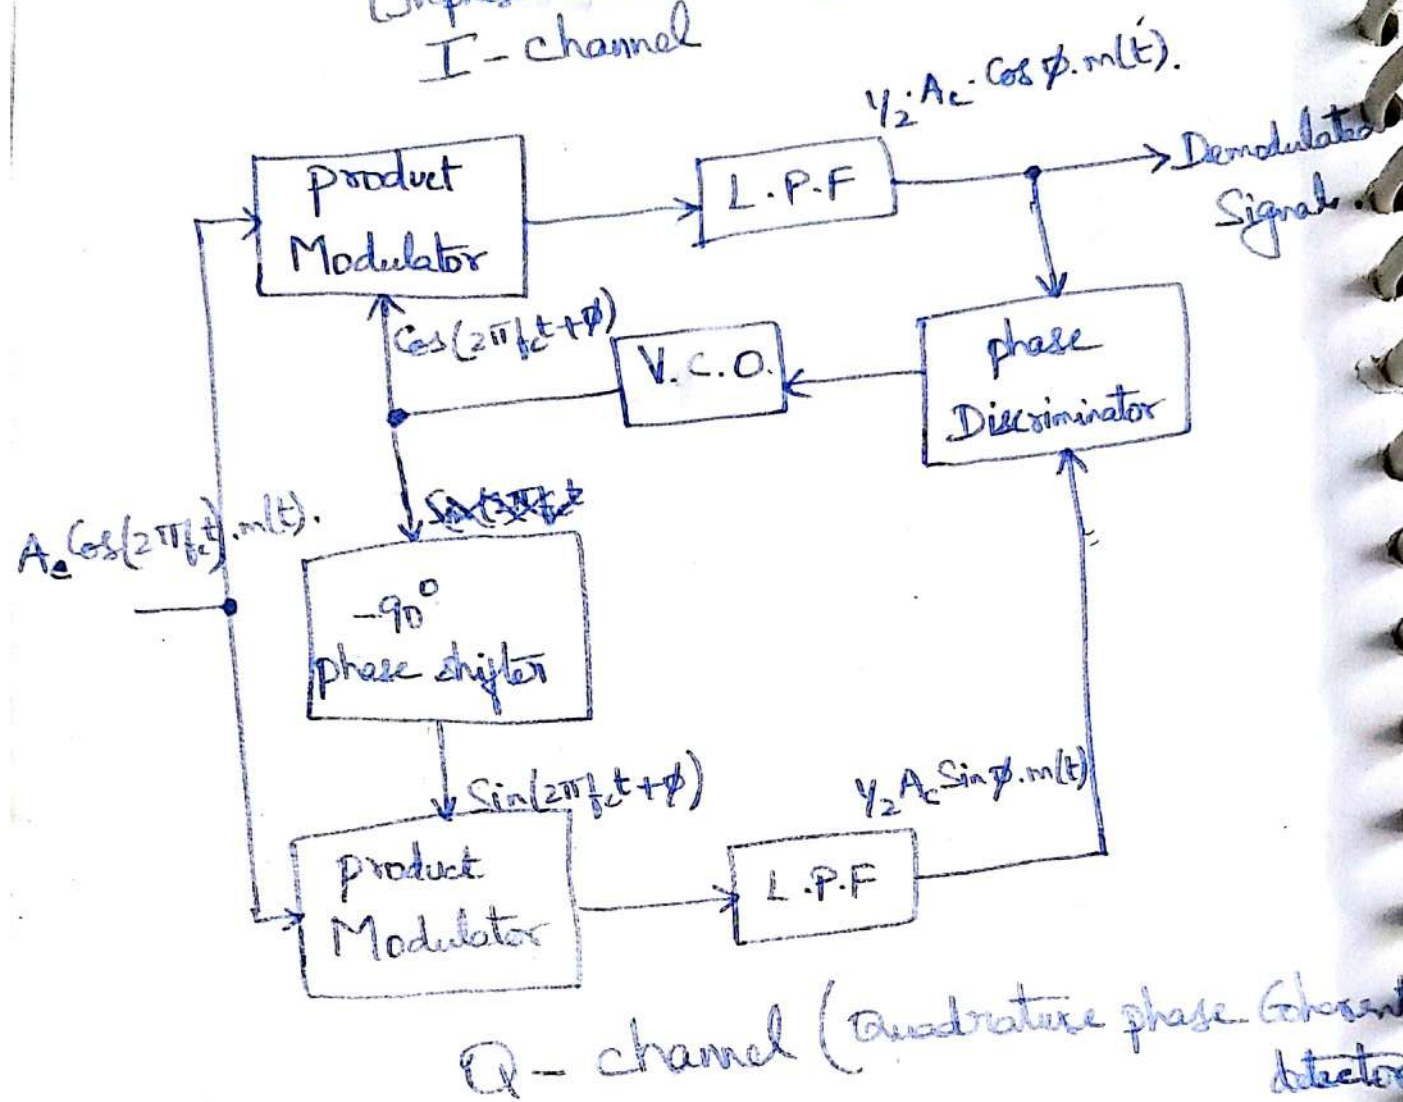 I - channel
1/2 · Ac · Cos φ. m(t).
product
Modulator
L.P.F
Demodulated
Signal.
Cos(2πfct+φ)
V.C.O.
phase
Discriminator
Ac Cos(2πfct).m(t).
-90°
phase shifter
Sin(2πfct+φ)
1/2 Ac Sinφ.m(t)
product
Modulator
L.P.F
Q - channel (Quadrature phase Coherent
detector